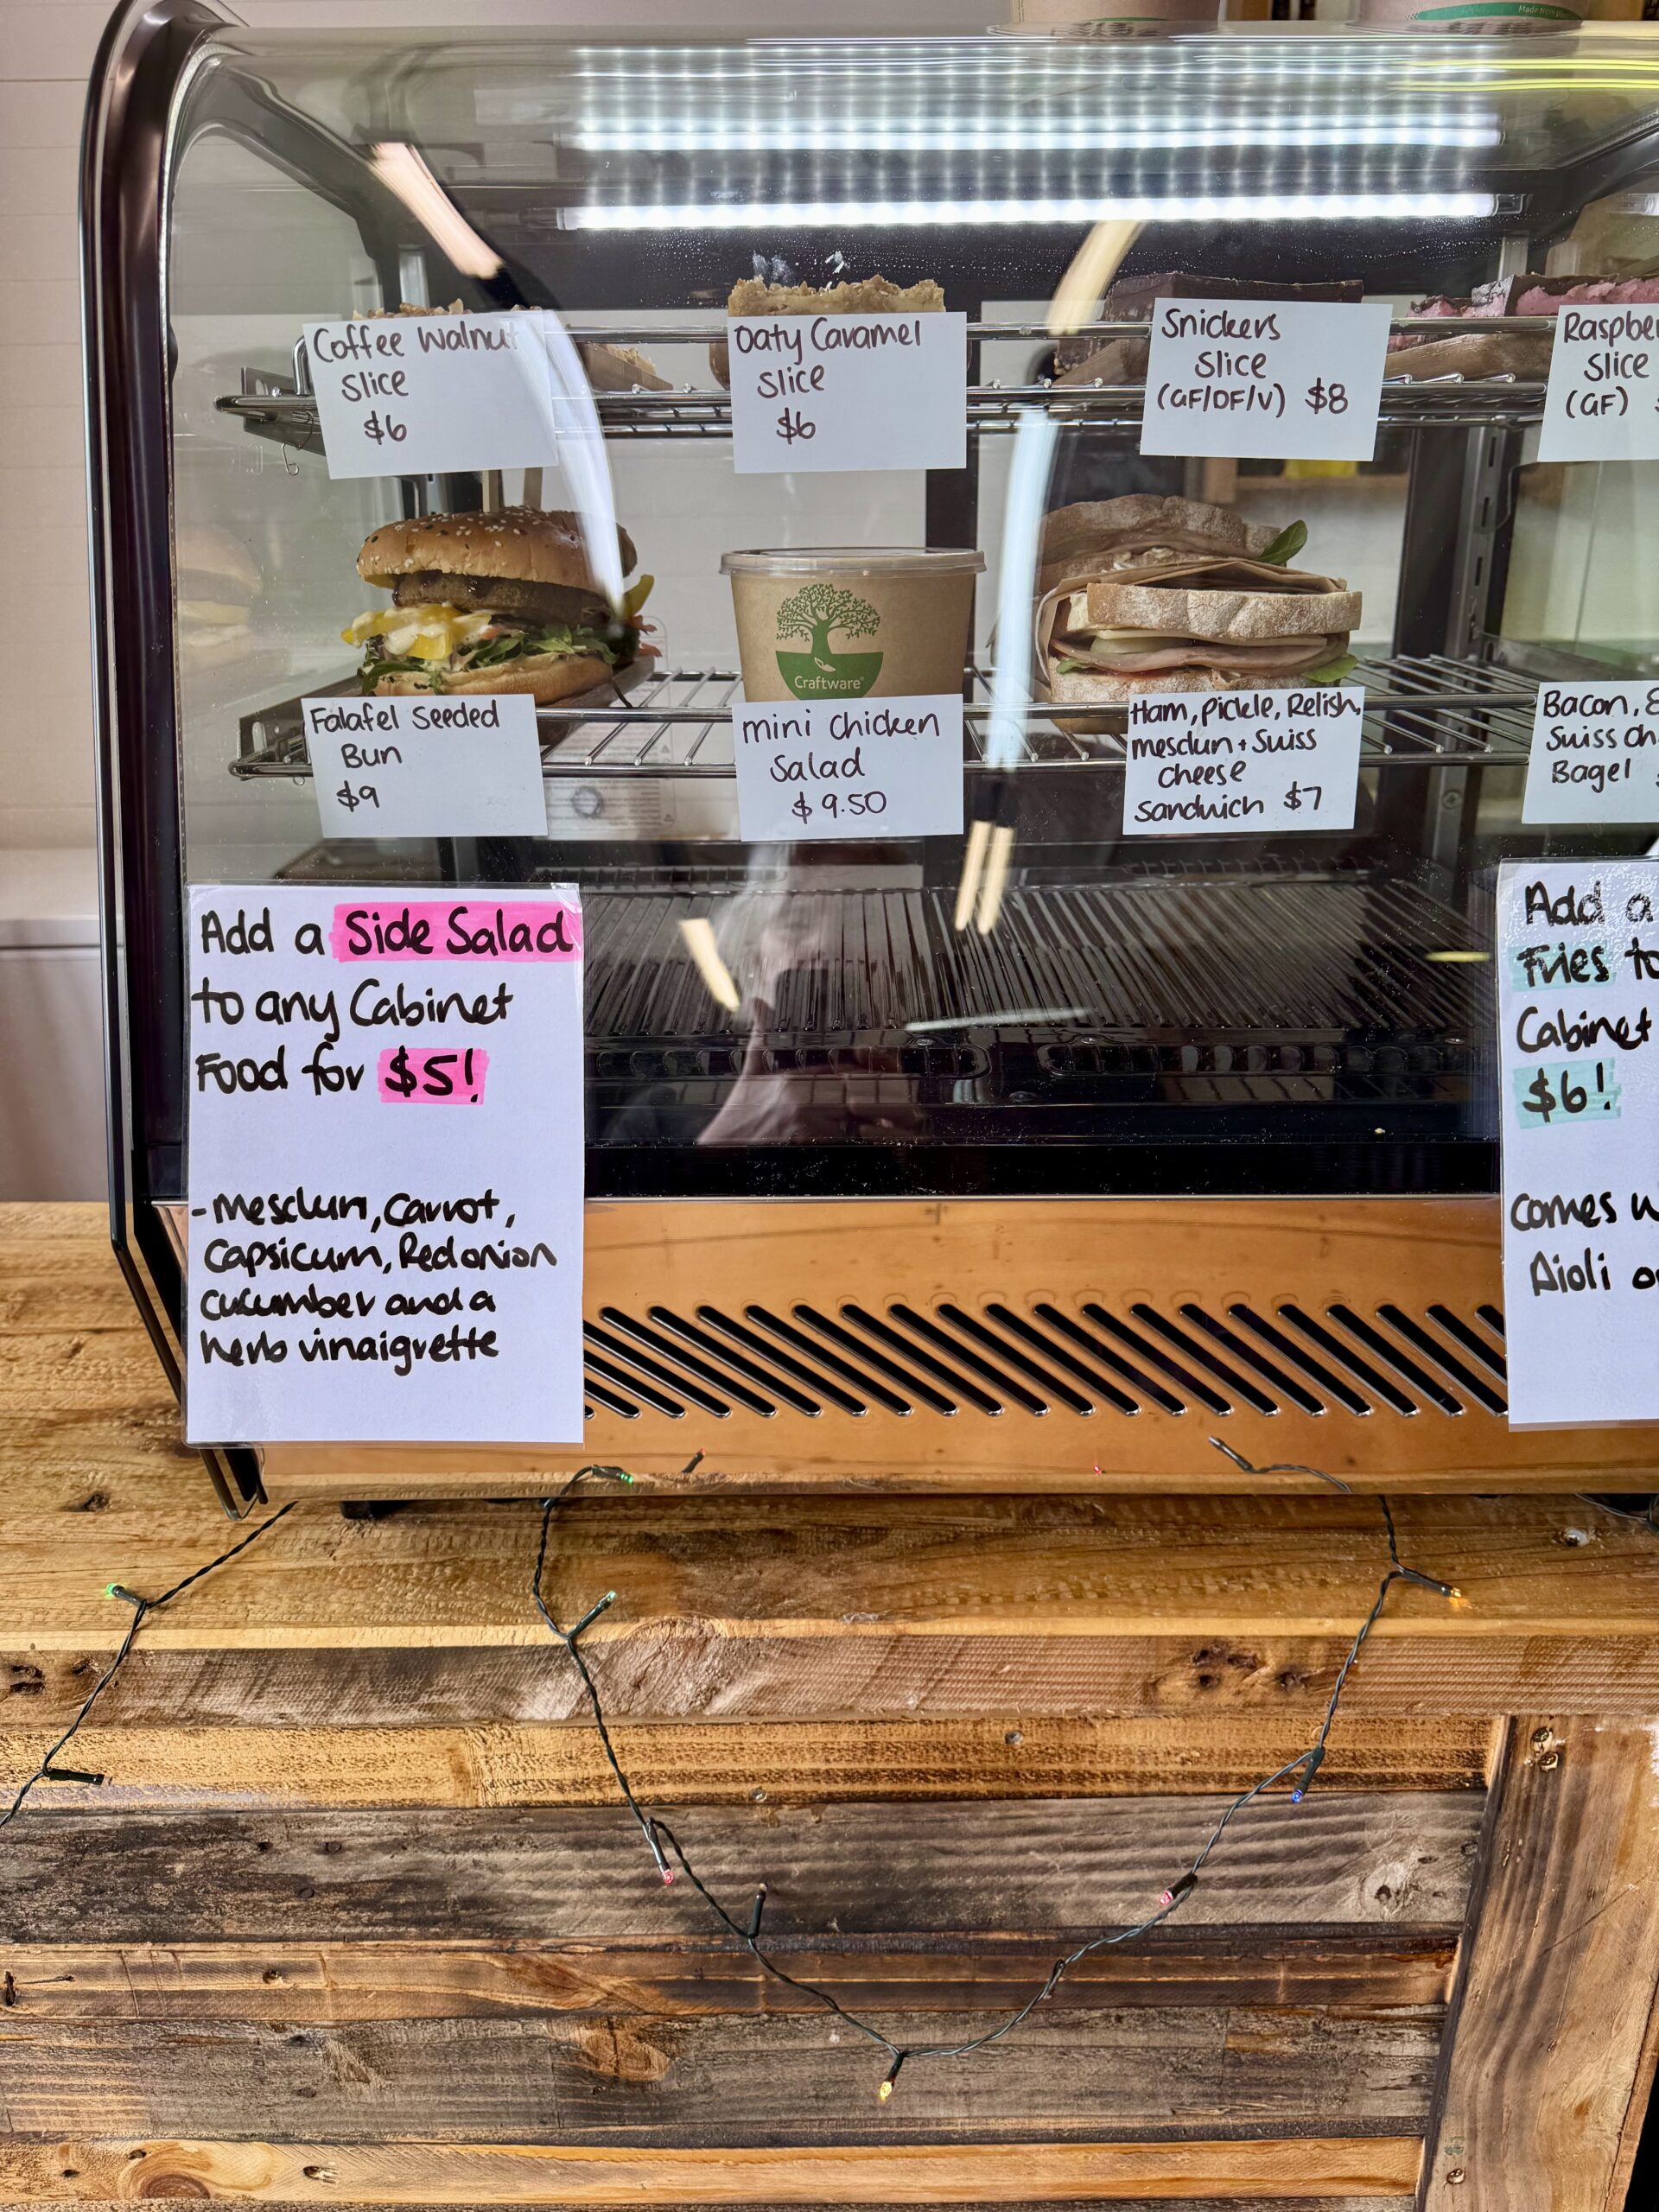 Made from
Coffee Walnut
Slice
$6
Oaty Caramel
Slice
$6
Snickers
Slice
(GF/DF/V) $8
Raspber
Slice
(GF)
Craftware®
Falafel Seeded
Bun
$9
mini Chicken
Salad
$9.50
Ham, Pickle, Relish,
mesclun + Suiss
Cheese
Sandwich $7
Bacon,
Suiss Ch
Bagel
Add a Side Salad
to any Cabinet
Food for $5!
- Mesclun, Carrot,
Capsicum, Red onion
cucumber and a
herb vinaigrette
Add a
Fries to
Cabinet
$6!
comes w
Aioli o